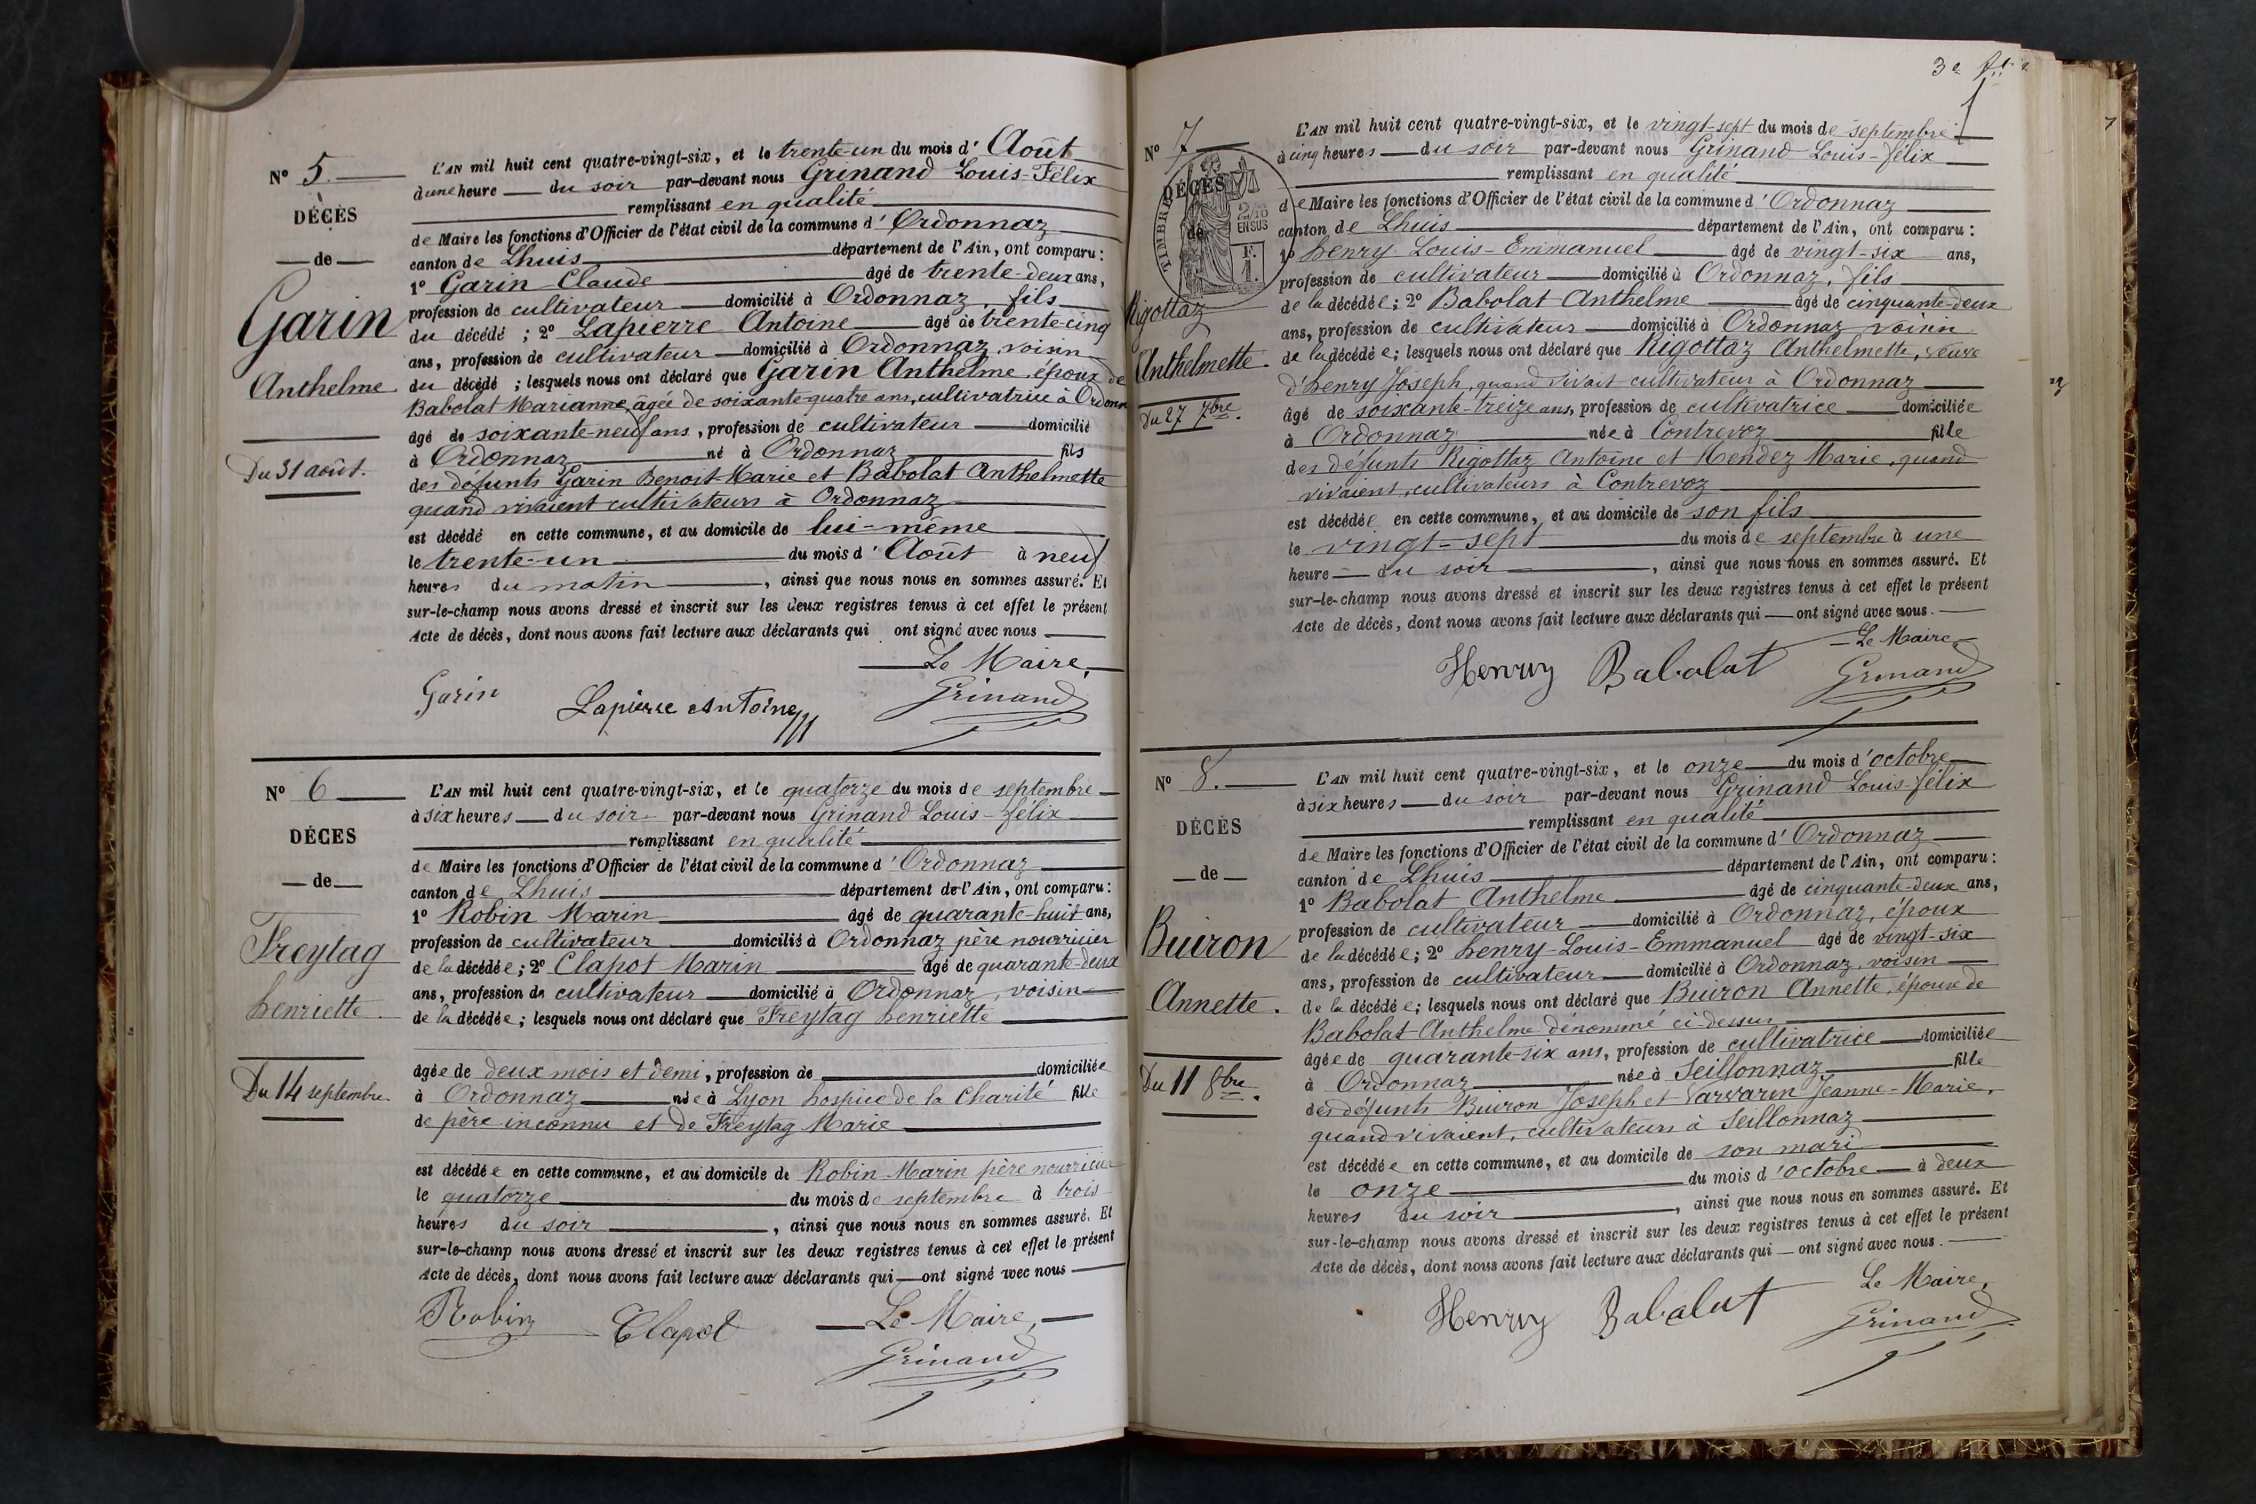 N° 5.
DÉCÈS
de
Garin
Anthelme
Du 31 août.
L'AN mil huit cent quatre-vingt-six, et le trente-un du mois d' Août
à une heure du soir par-devant nous Grinand Louis-Félix
remplissant en qualité
de Maire les fonctions d'Officier de l'état civil de la commune d' Ordonnaz
canton de Lhuis département de l'Ain, ont comparu :
1° Garin Claude âgé de trente-deux ans,
profession de cultivateur domicilié à Ordonnaz, fils
du décédé ; 2° Lapierre Antoine âgé de trente-cinq
ans, profession de cultivateur domicilié à Ordonnaz, voisin
du décédé ; lesquels nous ont déclaré que Garin Anthelme, époux de
Babolat Marianne, âgée de soixante-quatre ans, cultivatrice à Ordonn
âgé de soixante-neuf ans, profession de cultivateur domicilié
à Ordonnaz né à Ordonnaz fils
des défunts Garin Benoit-Marie et Babolat Anthelmette
quand vivaient cultivateurs à Ordonnaz
est décédé en cette commune, et au domicile de lui-même
le trente-un du mois d' Août à neuf
heures du matin, ainsi que nous nous en sommes assuré. Et
sur-le-champ nous avons dressé et inscrit sur les deux registres tenus à cet effet le présent
Acte de décès, dont nous avons fait lecture aux déclarants qui ont signé avec nous
Le Maire,
Garin Lapierre Antoine Grinand
N° 6
DÉCES
de
Freytag
henriette.
Du 14 septembre.
L'AN mil huit cent quatre-vingt-six, et le quatorze du mois de septembre
à six heures du soir par-devant nous Grinand Louis-félix
remplissant en qualité
de Maire les fonctions d'Officier de l'état civil de la commune d' Ordonnaz
canton de Lhuis département de l'Ain, ont comparu :
1° Robin Marin âgé de quarante-huit ans,
profession de cultivateur domicilié à Ordonnaz père nourricier
de la décédée ; 2° Clapot Marin âgé de quarante-deux
ans, profession de cultivateur domicilié à Ordonnaz, voisin
de la décédée ; lesquels nous ont déclaré que Freytag henriette
âgée de deux mois et demi, profession de domiciliée
à Ordonnaz née à Lyon hospice de la Charité fille
de père inconnu et de Freytag Marie
est décédée en cette commune, et au domicile de Robin Marin père nourricier
le quatorze du mois de septembre à trois
heures du soir, ainsi que nous nous en sommes assuré. Et
sur-le-champ nous avons dressé et inscrit sur les deux registres tenus à cet effet le présent
Acte de décès, dont nous avons fait lecture aux déclarants qui ont signé avec nous
Robin Clapot Le Maire,
Grinand
3e
N° 7
DÉCÈS
de
TIMBRE
2/10
EN SUS
F.
1.
Rigottaz
Anthelmette.
Du 27 7bre.
L'AN mil huit cent quatre-vingt-six, et le vingt-sept du mois de septembre
à cinq heures du soir par-devant nous Grinand Louis-félix
remplissant en qualité
de Maire les fonctions d'Officier de l'état civil de la commune d' Ordonnaz
canton de Lhuis département de l'Ain, ont comparu :
1° henry Louis-Emmanuel âgé de vingt-six ans,
profession de cultivateur domicilié à Ordonnaz, fils
de la décédée ; 2° Babolat Anthelme âgé de cinquante-deux
ans, profession de cultivateur domicilié à Ordonnaz voisin
de la décédée ; lesquels nous ont déclaré que Rigottaz Anthelmette, veuve
d'henry Joseph, quand vivait cultivateur à Ordonnaz
âgé de soixante-treize ans, profession de cultivatrice domiciliée
à Ordonnaz née à Contrevoz fille
des défunts Rigottaz Antoine et Mendez Marie, quand
vivaient, cultivateurs à Contrevoz
est décédée en cette commune, et au domicile de son fils
le vingt-sept du mois de septembre à une
heure du soir, ainsi que nous nous en sommes assuré. Et
sur-le-champ nous avons dressé et inscrit sur les deux registres tenus à cet effet le présent
Acte de décès, dont nous avons fait lecture aux déclarants qui ont signé avec nous.
Le Maire
Henry Babolat Grinand
N° 8.
DÉCÈS
de
Buiron
Annette.
Du 11 8bre.
L'AN mil huit cent quatre-vingt-six, et le onze du mois d'octobre
à six heures du soir par-devant nous Grinand Louis-félix
remplissant en qualité
de Maire les fonctions d'Officier de l'état civil de la commune d' Ordonnaz
canton de Lhuis département de l'Ain, ont comparu :
1° Babolat Anthelme âgé de cinquante-deux ans,
profession de cultivateur domicilié à Ordonnaz, époux
de la décédée ; 2° henry Louis-Emmanuel âgé de vingt-six
ans, profession de cultivateur domicilié à Ordonnaz, voisin
de la décédée ; lesquels nous ont déclaré que Buiron Annette, épouse de
Babolat Anthelme dénommé ci-dessus
âgée de quarante-six ans, profession de cultivatrice domiciliée
à Ordonnaz née à Seillonnaz fille
des défunts Buiron Joseph et Varvarin Jeanne-Marie,
quand vivaient, cultivateurs à Seillonnaz
est décédée en cette commune, et au domicile de son mari
le onze du mois d'octobre à deux
heures du soir, ainsi que nous nous en sommes assuré. Et
sur-le-champ nous avons dressé et inscrit sur les deux registres tenus à cet effet le présent
Acte de décès, dont nous avons fait lecture aux déclarants qui ont signé avec nous.
Le Maire,
Henry Babolat Grinand